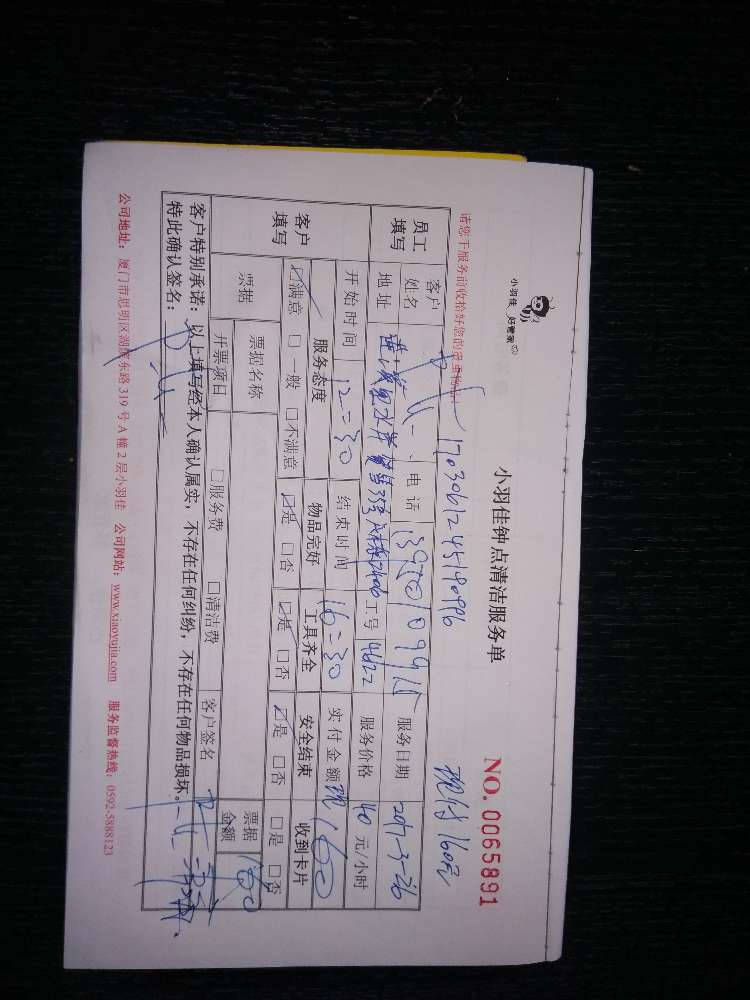 小羽佳 好管家
小羽佳钟点清洁服务单
NO. 0065891
请您于服务前收给好您的贵重物品
17030612451909916
现付160元
员工填写
客户姓名
电话
服务日期 2017-3-26
地址
工号 4622
服务价格 40 元/小时
开始时间 12:30
结束时间 16:30
实付金额 现160
客户填写
服务态度 物品完好 工具齐全 安全结束 收到卡片
☑满意 □一般 □不满意 ☑是 □否 ☑是 □否 ☑是 □否 □是 □否
票据
票据名称
票据金额 160
开票项目 □服务费 □清洁费 客户签名
客户特别承诺：以上填写经本人确认属实，不存在任何纠纷，不存在任何物品损坏。
特此确认签名：
公司地址：厦门市思明区湖滨东路319号A幢2层小羽佳 公司网站：www.xiaoyujia.com 服务监督热线：0592-5888123